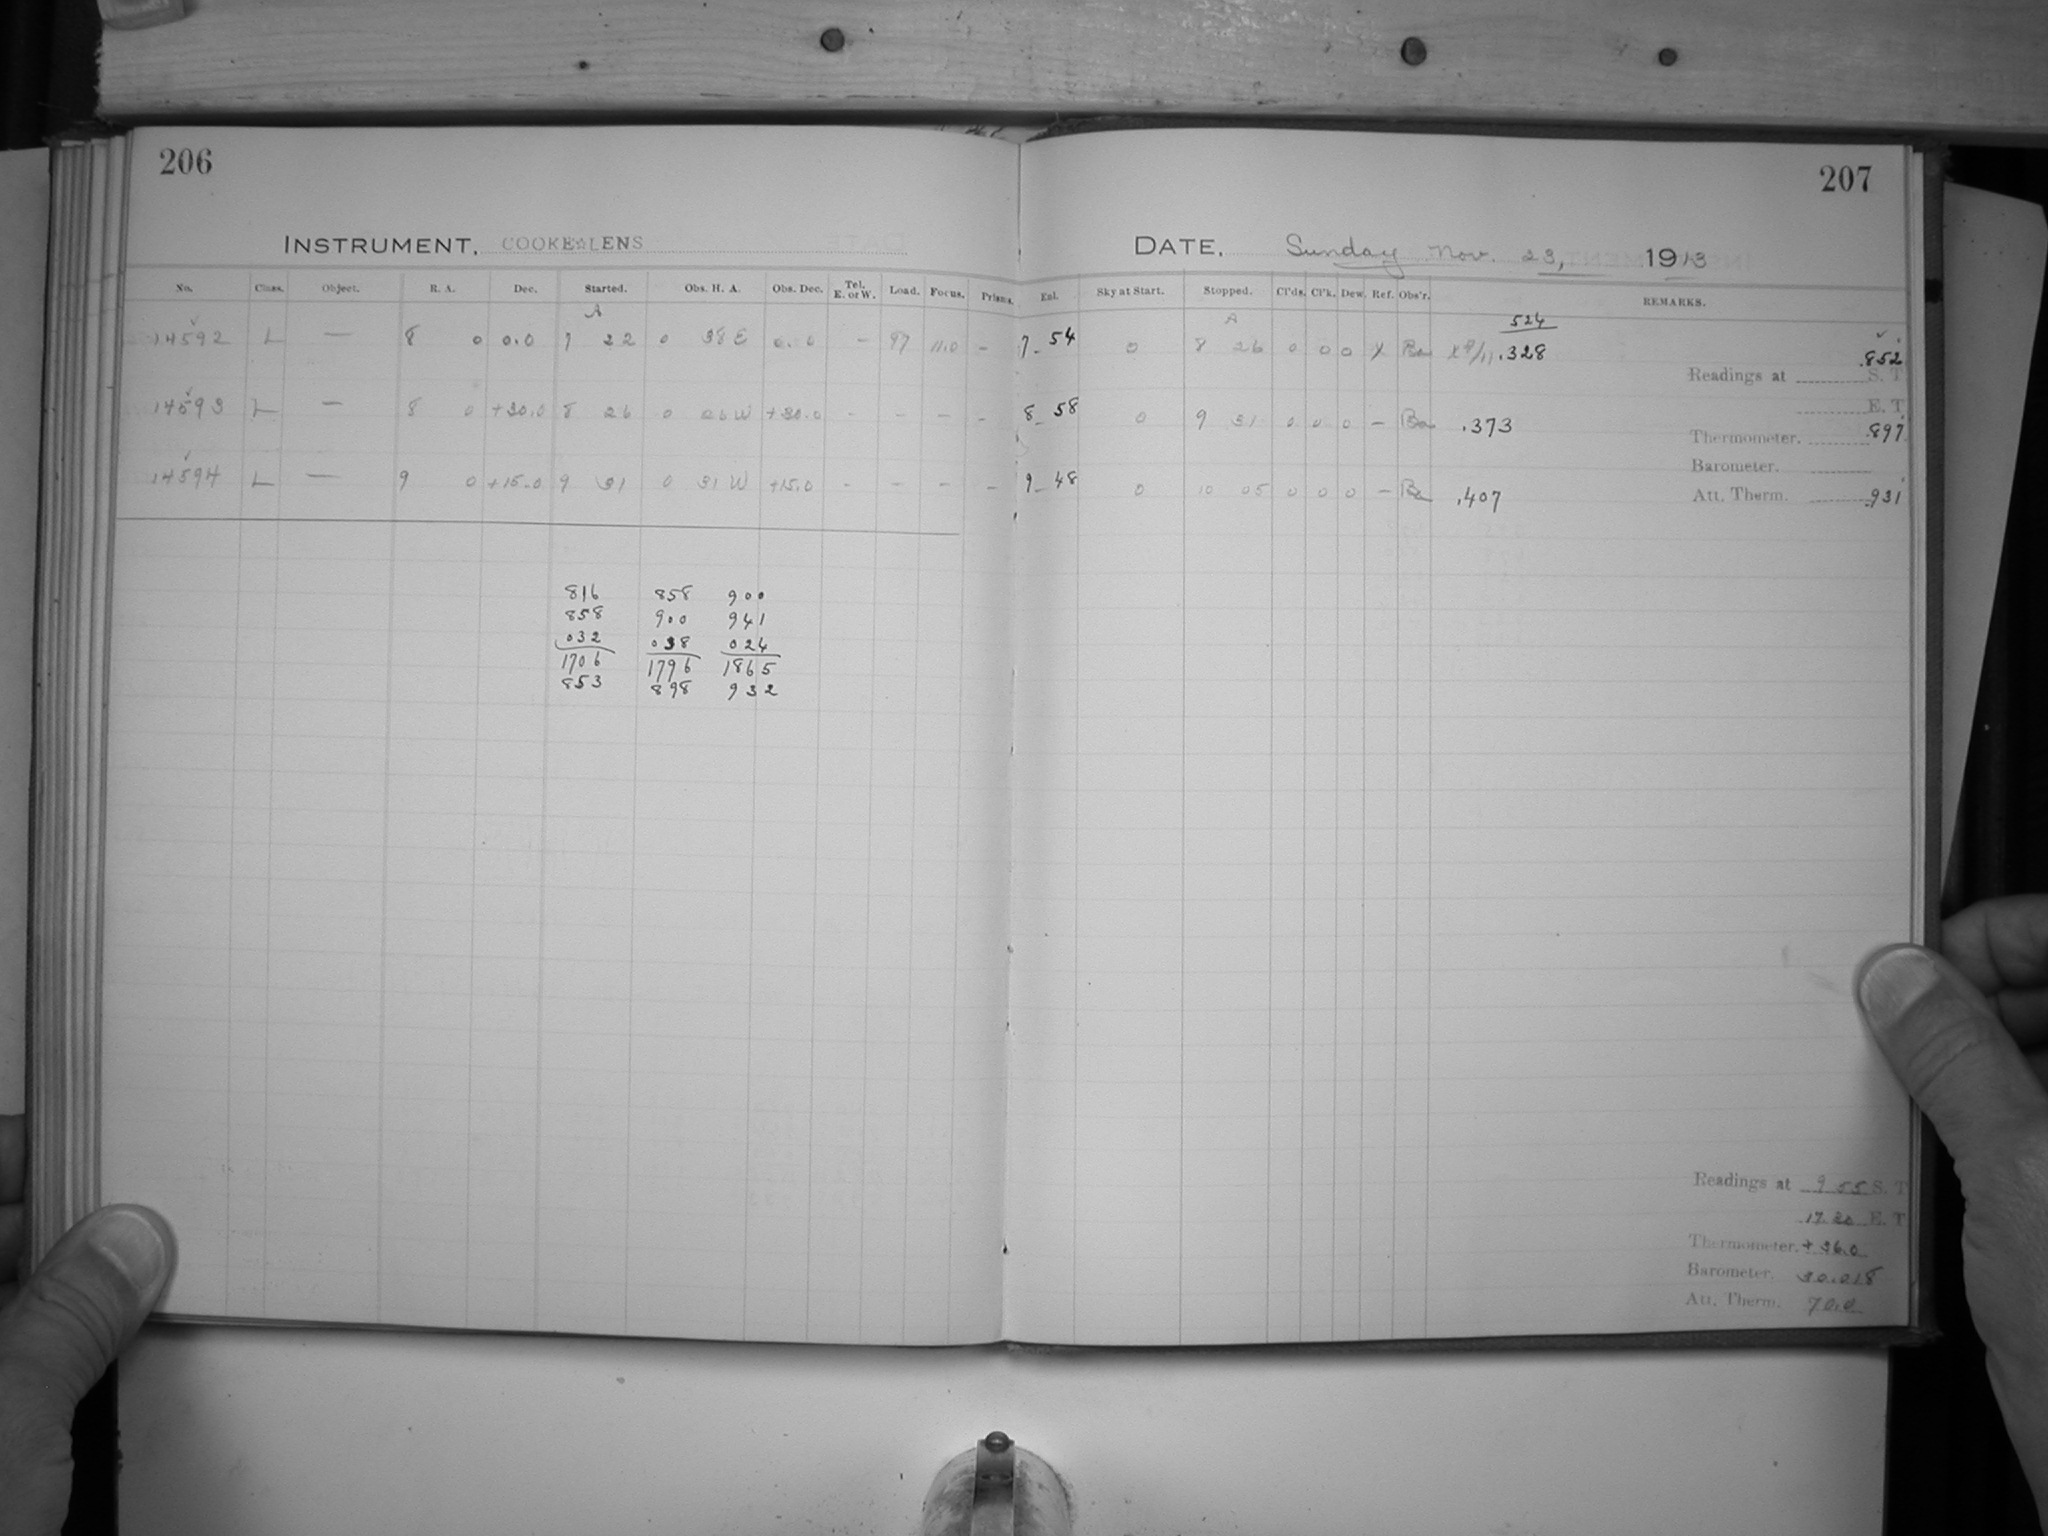 206
INSTRUMENT, COOKE☆LENS
No. Class. Object. R. A. Dec. Started. Obs. H. A. Obs. Dec. Tel. E. or W. Load. Focus. Prisms.
A
14592 L — 8 0 0.0 7 22 0 38 E 0.0 – 97 11.0 –
14593 L — 8 0 +30.0 8 26 0 26 W +30.0 – – – –
14594 L — 9 0 +15.0 9 31 0 31 W +15.0 – – – –
816 858 900
858 900 941
032 038 024
1706 1796 1865
853 898 932
207
DATE, Sunday Nov. 23, 1913
Exl. Sky at Start. Stopped. Cl'ds. Cl'k. Dew. Ref. Obs'r. REMARKS.
A 524
7 54 0 8 26 0 0 0 X Ba .328 .852
Readings at S. T
E. T
8 58 0 9 31 0 0 0 – Ba .373 .897
Thermometer.
Barometer.
9 48 0 10 05 0 0 0 – Ba .407 Att. Therm. .931
Readings at 9 55 S. T
17.30 E. T
Thermometer. +36.0
Barometer. 30.018
Att. Therm. 70.0